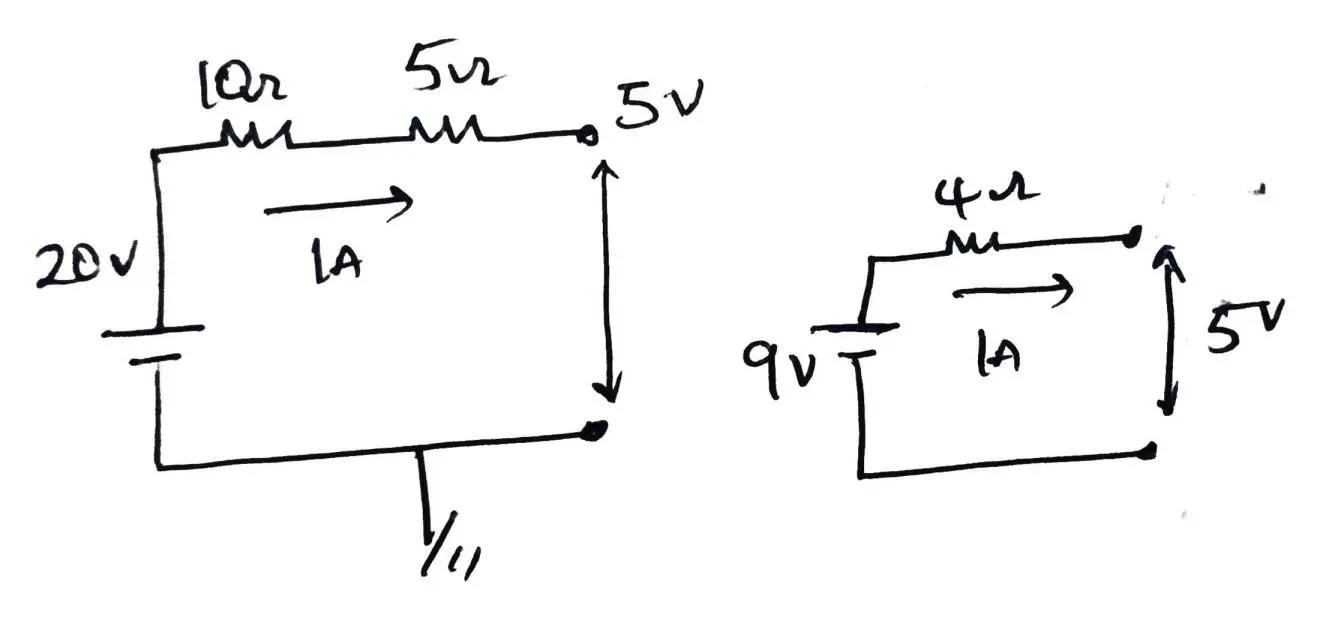 10Ω 5Ω
5V
20V
1A
4Ω
9V
1A
5V